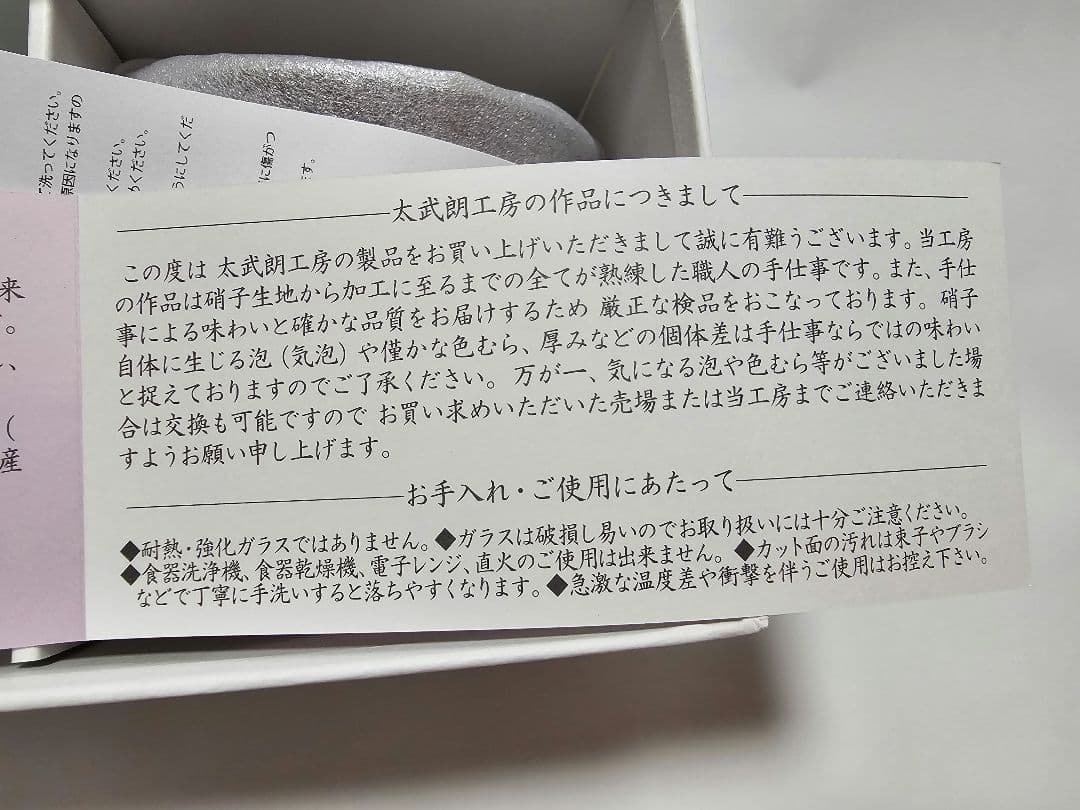 太武朗工房の作品につきまして
この度は 太武朗工房の製品をお買い上げいただきまして誠に有難うございます。当工房
の作品は硝子生地から加工に至るまでの全てが熟練した職人の手仕事です。また、手仕
事による味わいと確かな品質をお届けするため 厳正な検品をおこなっております。硝子
自体に生じる泡（気泡）や僅かな色むら、厚みなどの個体差は手仕事ならではの味わい
と捉えておりますのでご了承ください。万が一、気になる泡や色むら等がございました場
合は交換も可能ですので お買い求めいただいた売場または当工房までご連絡いただきま
すようお願い申し上げます。
お手入れ・ご使用にあたって
◆耐熱・強化ガラスではありません。◆ガラスは破損し易いのでお取り扱いには十分ご注意ください。
◆食器洗浄機、食器乾燥機、電子レンジ、直火のご使用は出来ません。◆カット面の汚れは束子やブラシ
などで丁寧に手洗いすると落ちやすくなります。◆急激な温度差や衝撃を伴うご使用はお控え下さい。
洗ってください。
原因になりますの
ください。
ください。
うにしてくだ
に傷がつ
す。
来
。
、
（
産